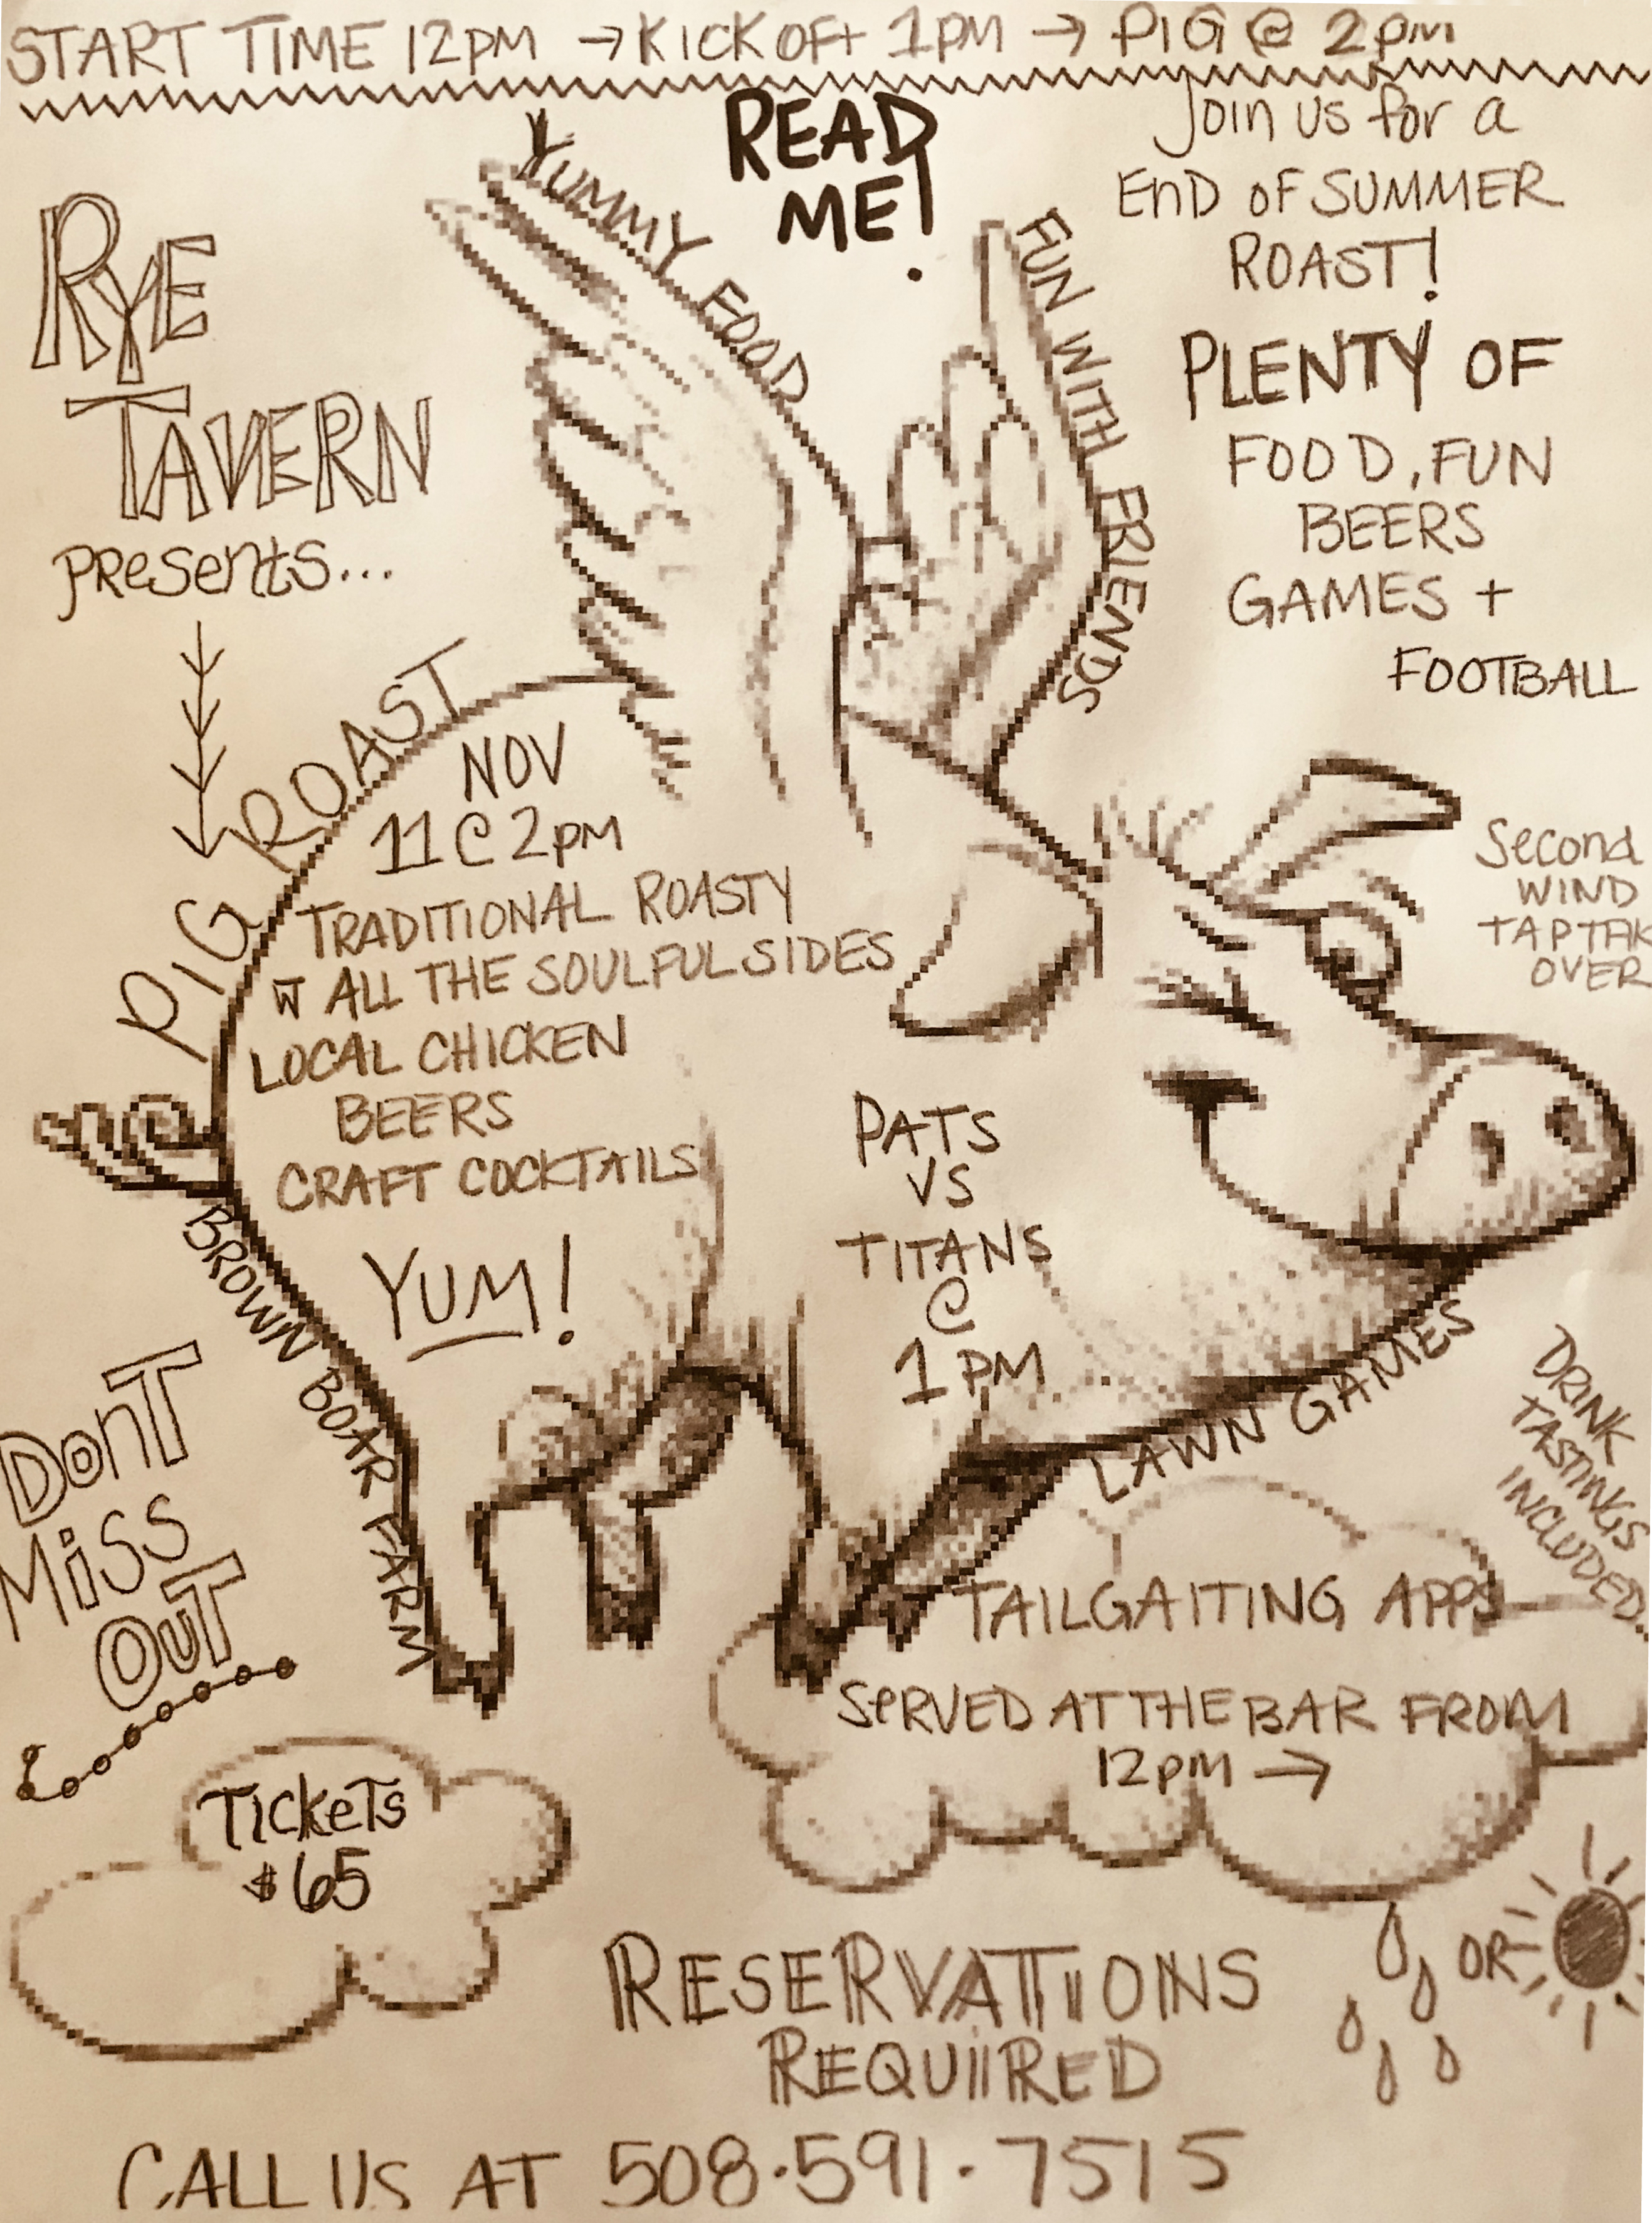 START TIME 12PM → KICK OFF 1PM → PIG @ 2PM
READ
ME!
RYE
TAVERN
Presents...
YUMMY FOOD
FUN WITH FRIENDS
Join us for a
END OF SUMMER
ROAST!
PLENTY OF
FOOD, FUN
BEERS
GAMES +
FOOTBALL
PIG ROAST
NOV
11 @ 2PM
TRADITIONAL ROASTY
W ALL THE SOULFUL SIDES
LOCAL CHICKEN
BEERS
CRAFT COCKTAILS
YUM!
Second
WIND
TAP TAK
OVER
PATS
VS
TITANS
@
1 PM
BROWN BOAR FARM
LAWN GAMES
DRINK
TASTINGS
INCLUDED.
DonT
MiSS
OUT
TAILGAITING APPS
SERVED AT THE BAR FROM
12PM →
TICKETS
$65
OR
RESERVATIONS
REQUIIRED
CALL US AT 508.591.7515